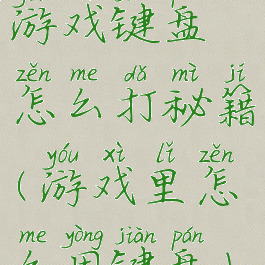 游戏键盘
zěn me dǎ mì jí
怎么打秘籍
yóu xì lǐ zěn
(游戏里怎
me yòng jiàn pán
么用键盘)